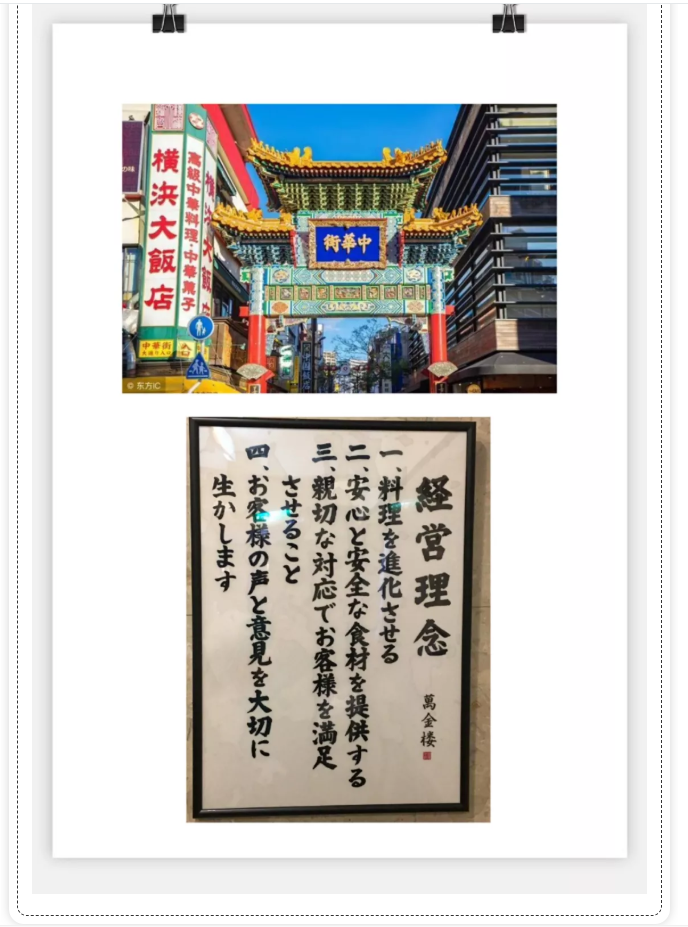 横浜大飯店
高級中華料理・中華菓子
中華街
中華街
© 东方IC
経営理念
萬金楼
一、料理を進化させる
二、安心と安全な食材を提供する
三、親切な対応でお客様を満足
させること
四、お客様の声と意見を大切に
生かします